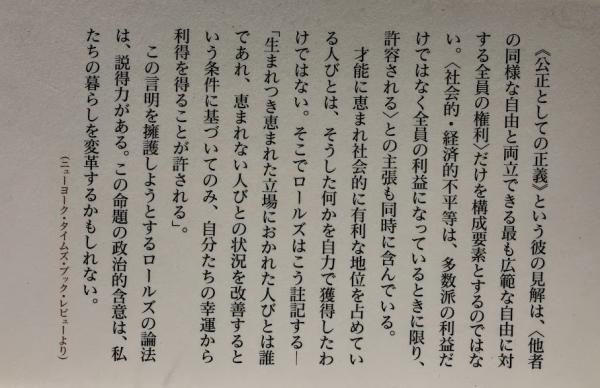 《公正としての正義》という彼の見解は、〈他者
の同様な自由と両立できる最も広範な自由に対
する全員の権利〉だけを構成要素とするのではな
い。〈社会的・経済的不平等は、多数派の利益だ
けではなく全員の利益になっているときに限り、
許容される〉との主張も同時に含んでいる。
才能に恵まれ社会的に有利な地位を占めてい
る人びとは、そうした何かを自力で獲得したわ
けではない。そこでロールズはこう註記する—
「生まれつき恵まれた立場におかれた人びとは誰
であれ、恵まれない人びとの状況を改善すると
いう条件に基づいてのみ、自分たちの幸運から
利得を得ることが許される」。
この言明を擁護しようとするロールズの論法
は、説得力がある。この命題の政治的含意は、私
たちの暮らしを変革するかもしれない。
(ニューヨーク・タイムズ・ブック・レビューより)